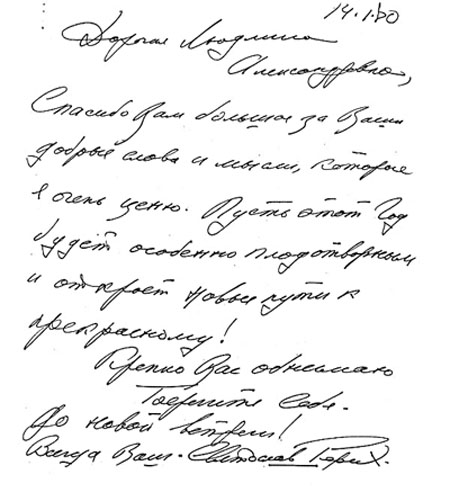 14.1.60
Дорогая Людмила
Александровна,
Спасибо Вам большое за Ваши
добрые слова и мысли, которые
я очень ценю. Пусть этот Год
будет особенно плодотворным
и откроет новые пути к
прекрасному!
Крепко Вас обнимаю
Берегите Себя.
До новой встречи!
Всегда Ваш. Святослав Рерих.